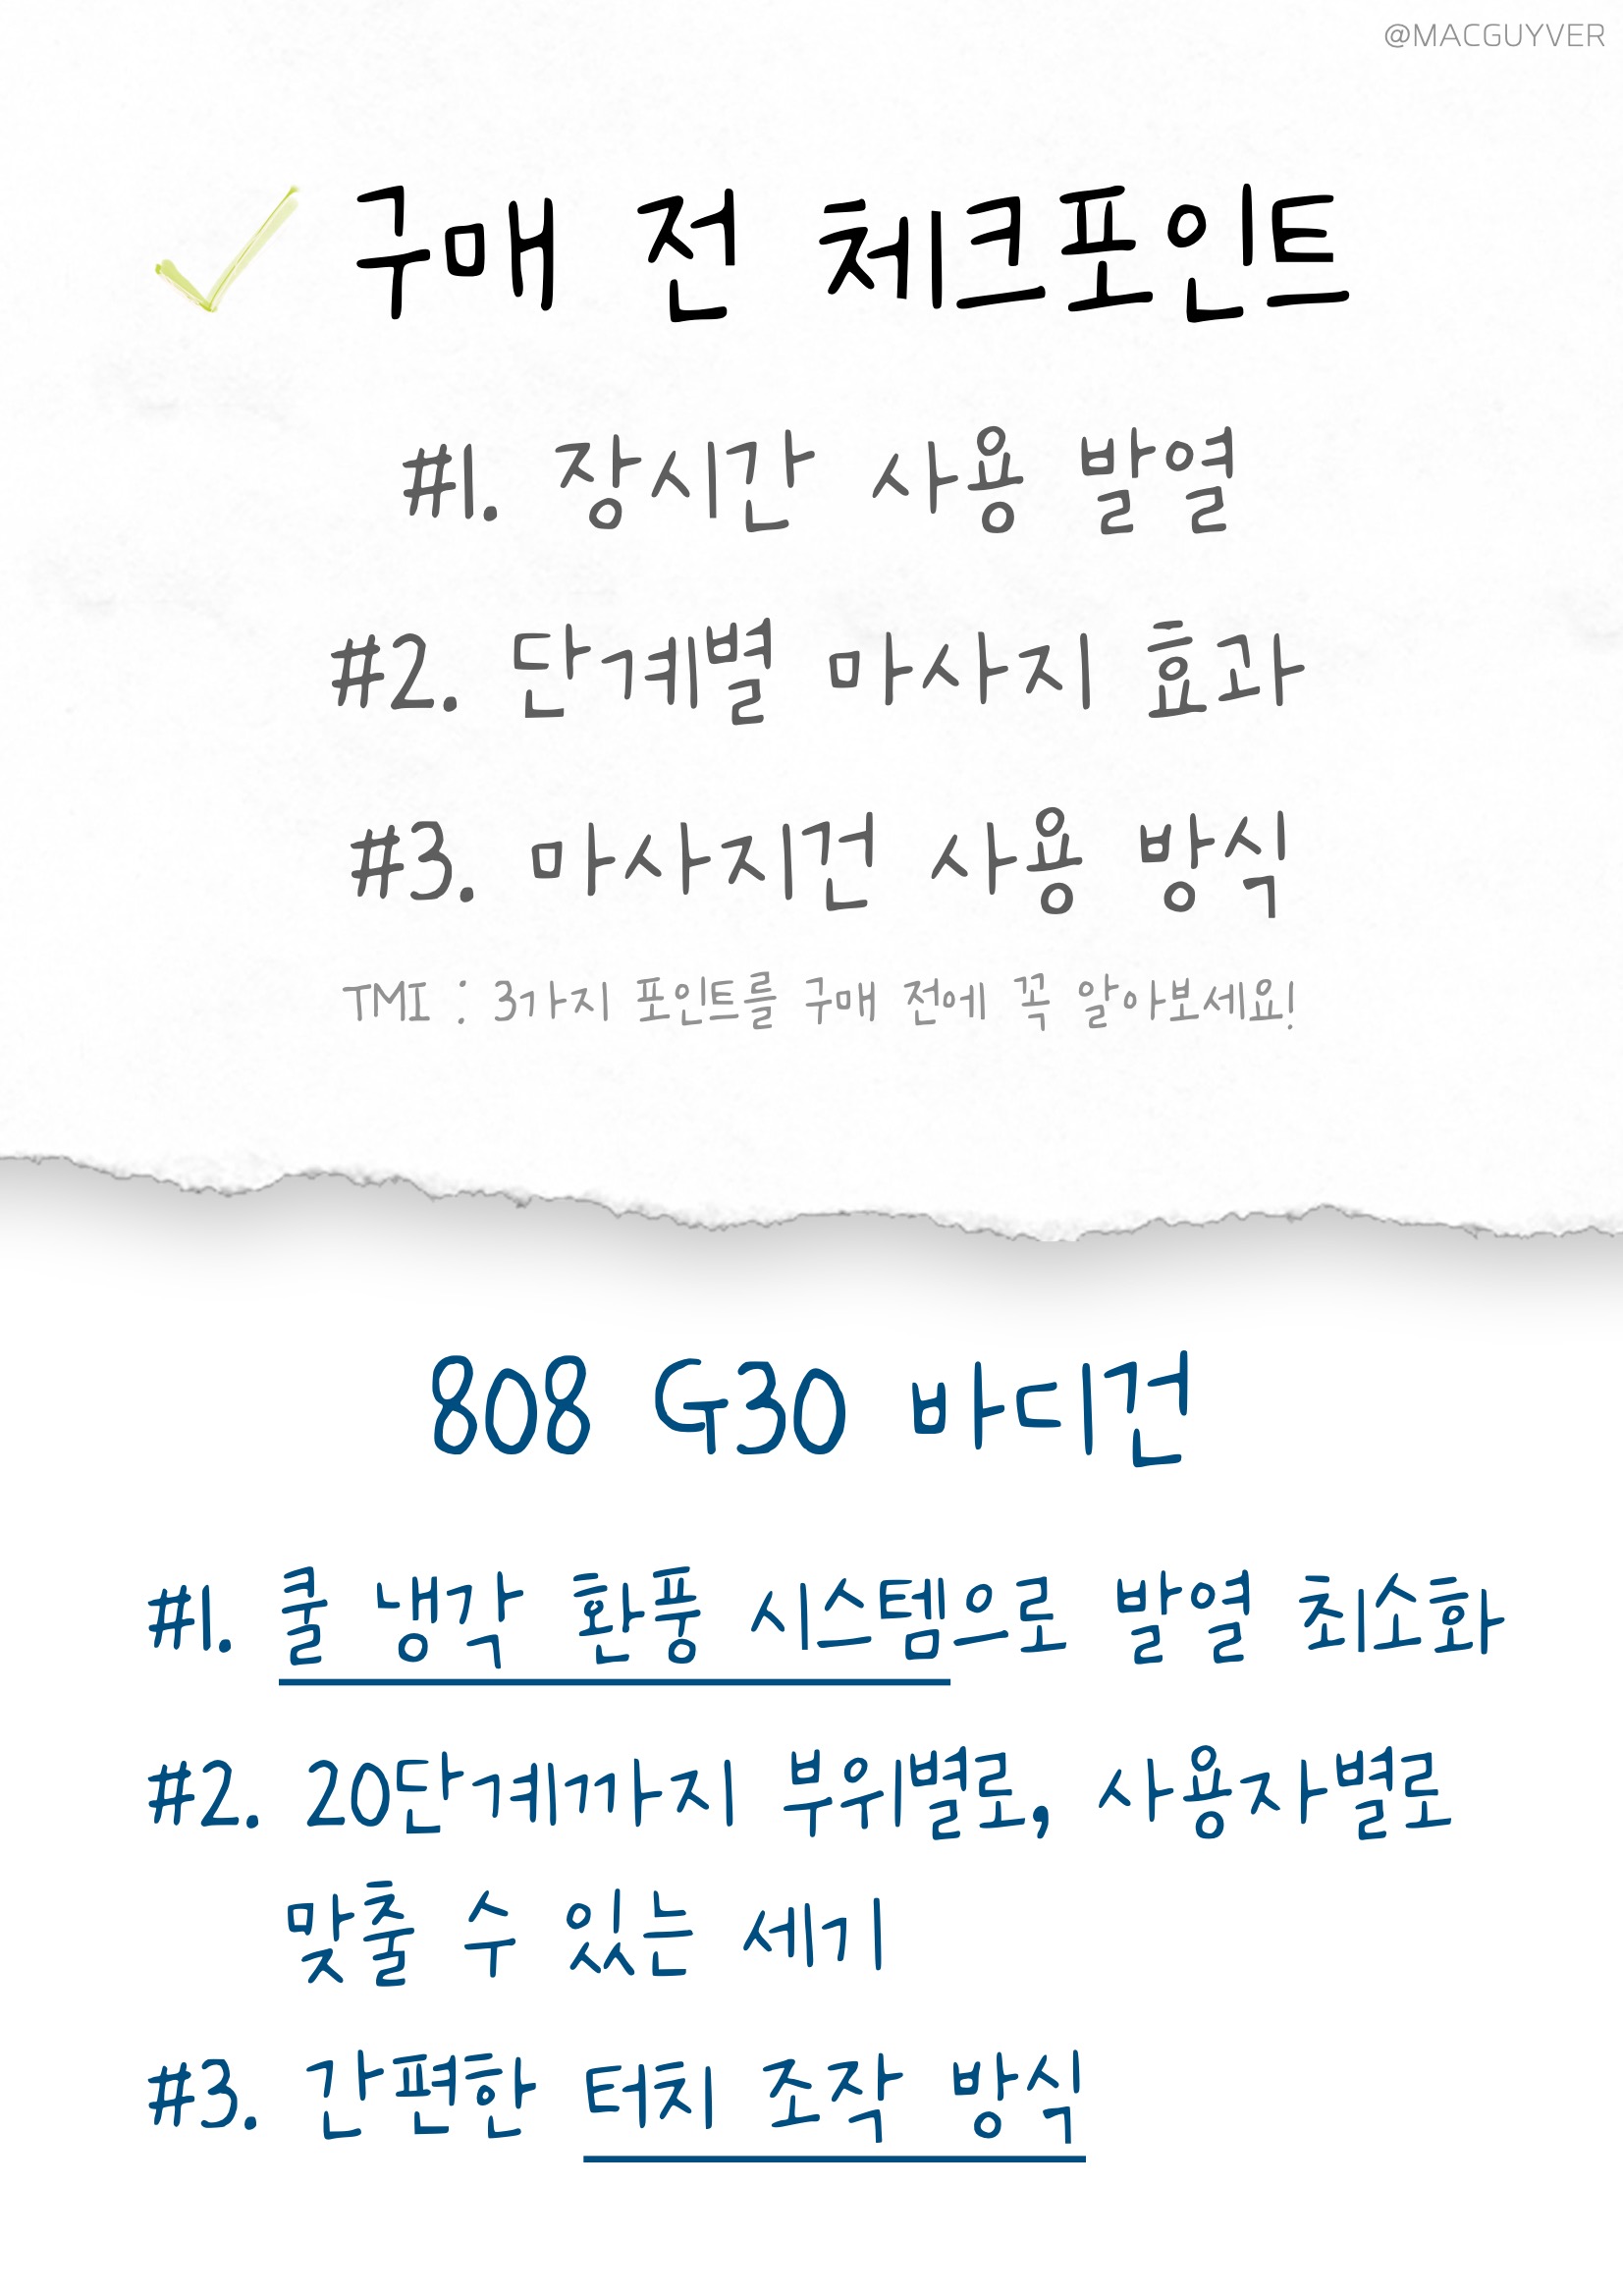 @MACGUYVER
구매 전 체크포인트
#1. 장시간 사용 발열
#2. 단계별 마사지 효과
#3. 마사지건 사용 방식
TMI : 3가지 포인트를 구매 전에 꼭 알아보세요!
808 G30 바디건
#1. 쿨 냉각 환풍 시스템으로 발열 최소화
#2. 20단계까지 부위별로, 사용자별로
맞출 수 있는 세기
#3. 간편한 터치 조작 방식